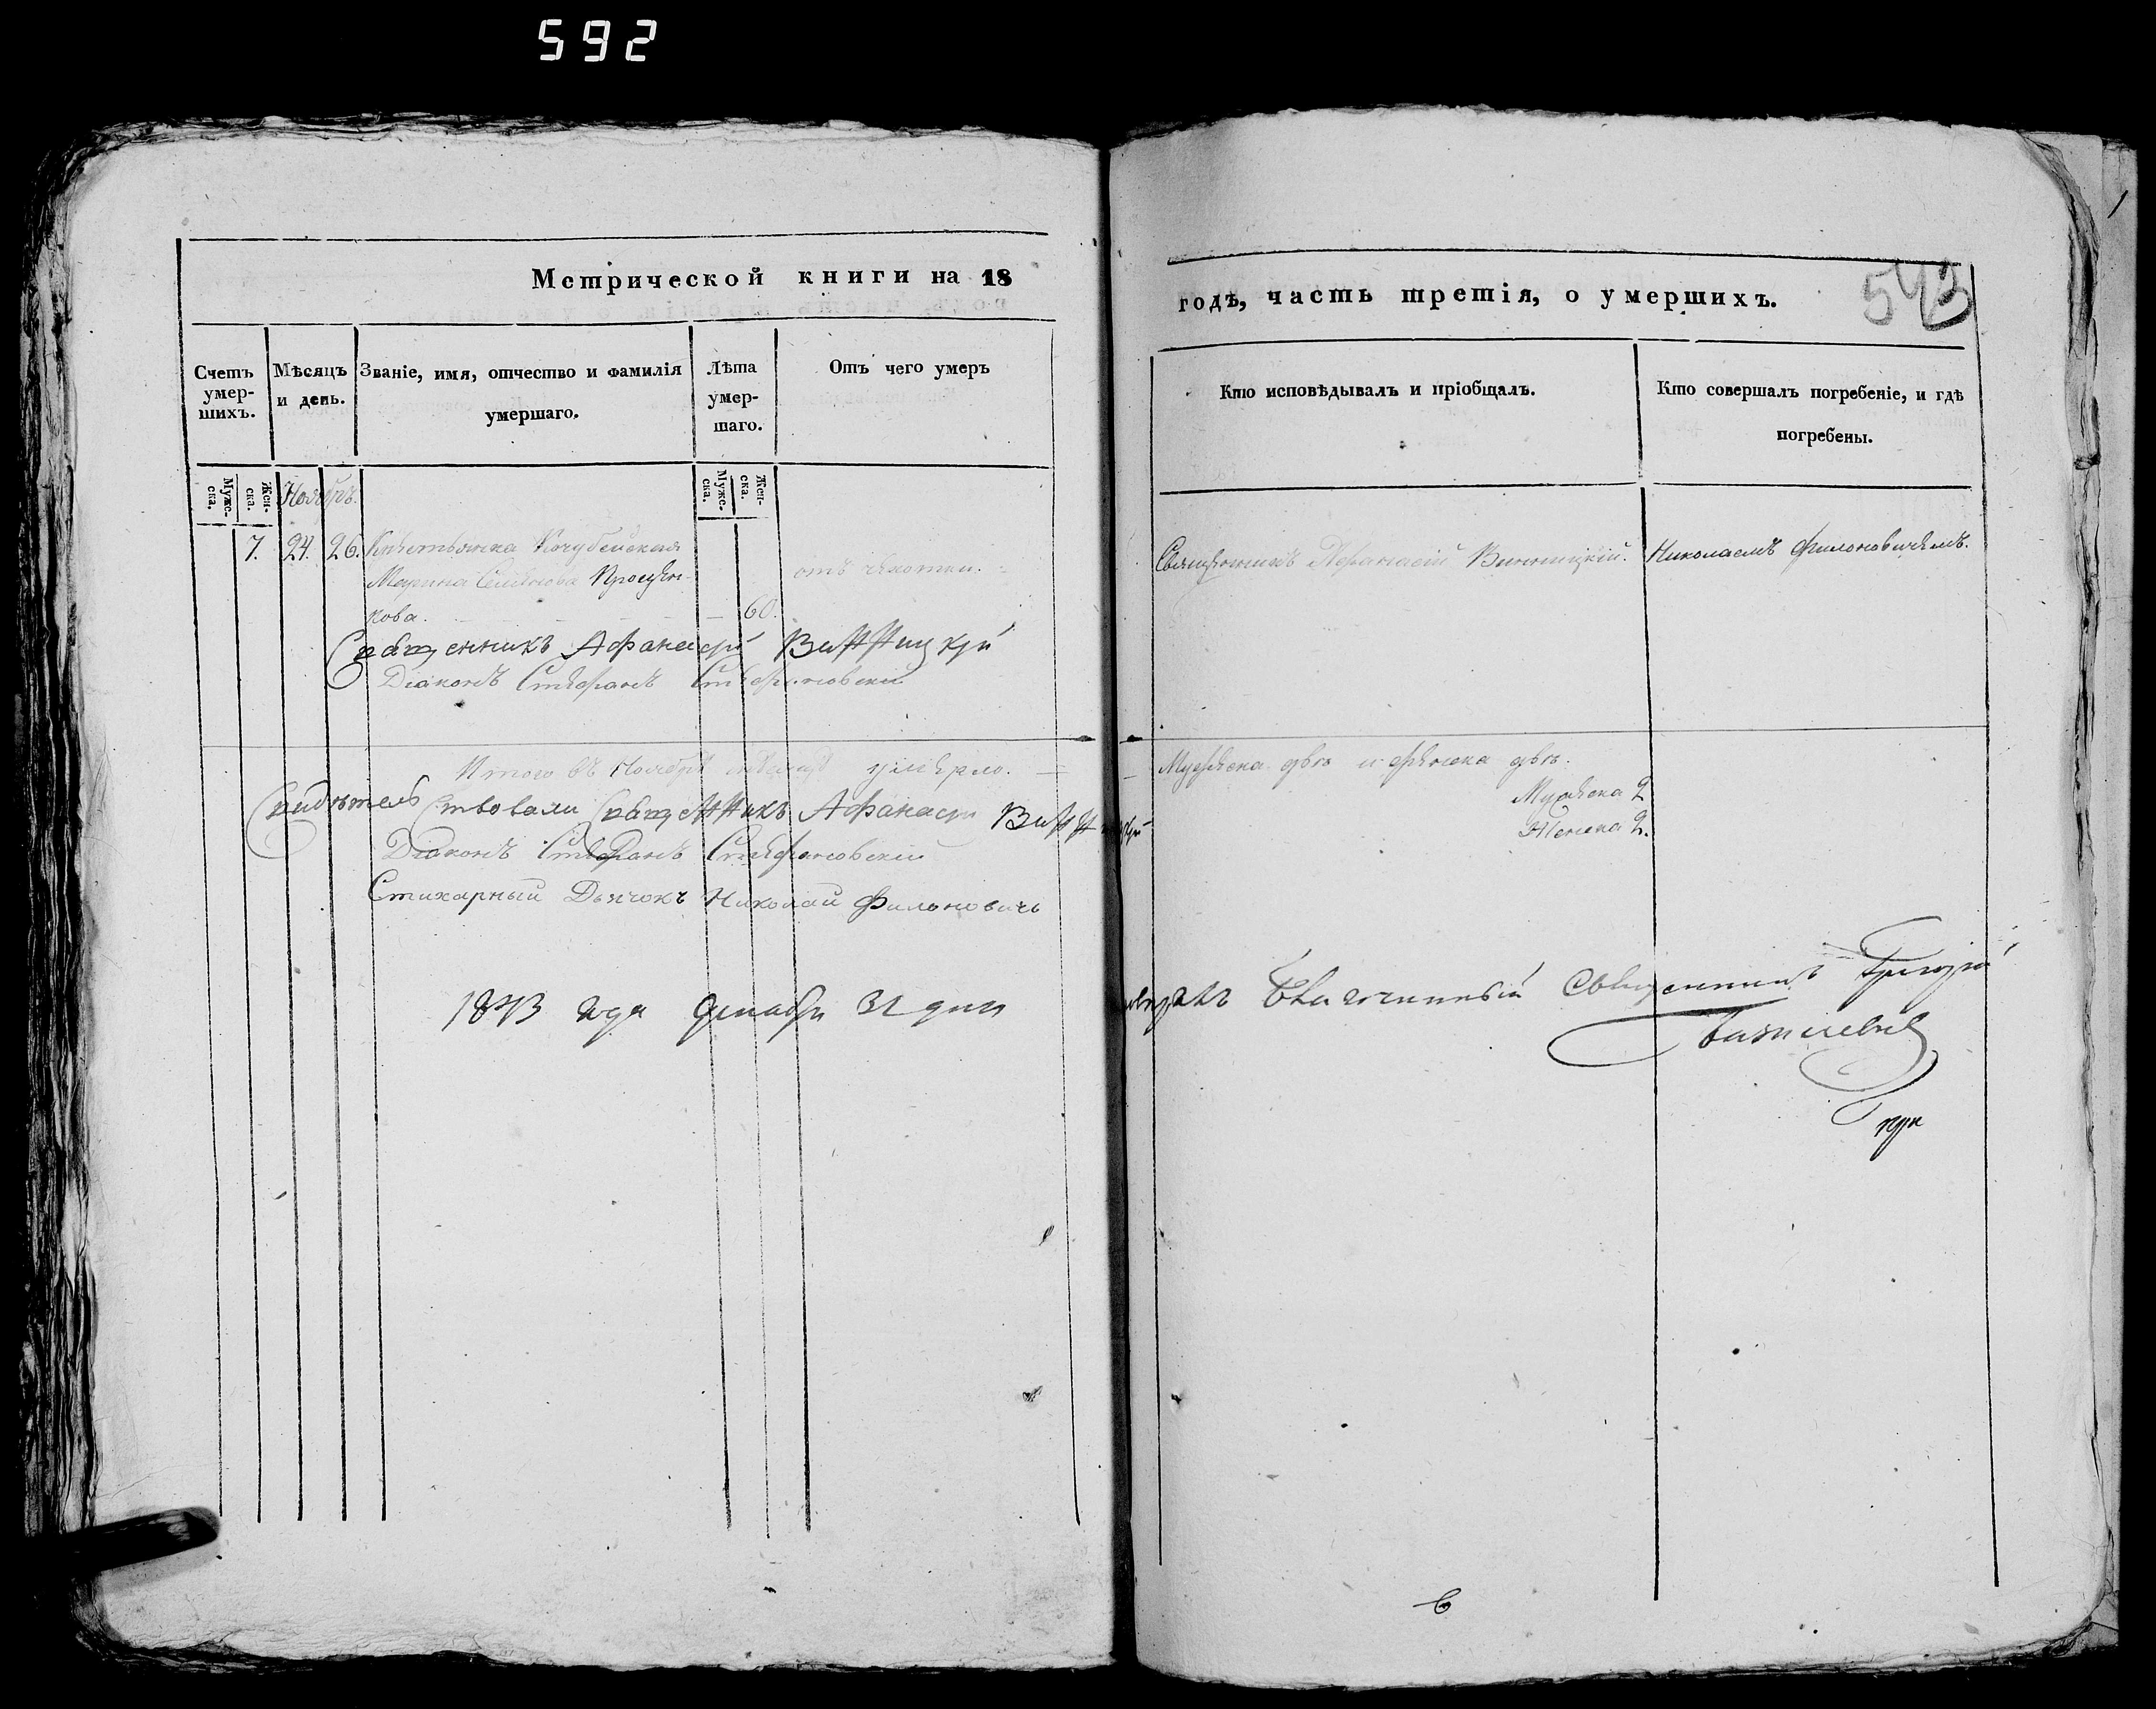 592
Метрической книги на 18
годѣ, часть третія, о умершихъ.
543
Счетъ умер-шихъ.
Мѣсяцъ и день.
Званіе, имя, отчество и фамилія умершаго.
Лѣта умер-шаго.
Отъ чего умеръ
Кто исповѣдывалъ и пріобщалъ.
Кто совершалъ погребеніе, и гдѣ погребены.
Муже-ска.
Жен-ска.
Ноябрь.
Муже-ска.
Жен-ска.
7. 24. 26. Крестьянка Кочубейская
Марина Семенова Процен-
кова. 60.
отъ чахотки.
Священникъ Афанасій Винницкій.
Николаемъ Филоновичемъ.
Священникъ Афанасій Винницкій
Діаконъ Стефанъ Стефановскій
Итого въ Ноябрѣ умерло.
Мужеска два и женска два.
Мужеска 2
Женска 2.
Свидѣтельствовали Священникъ Афанасій Винницкій
Діаконъ Стефанъ Стефановскій
Стихарный Дьячокъ Николай Филоновичь
1843 года Декабря 31 дня
Благочинный Священникъ Григорій
Базилевич